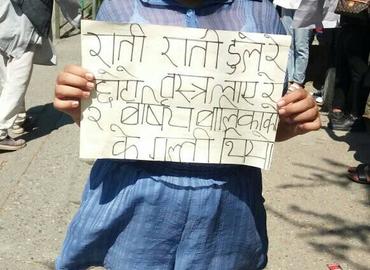 राती राती डुले रे
छोटो वस्त्र लाए रे
२ बर्षिय बालिकाको
के गल्ती थियो